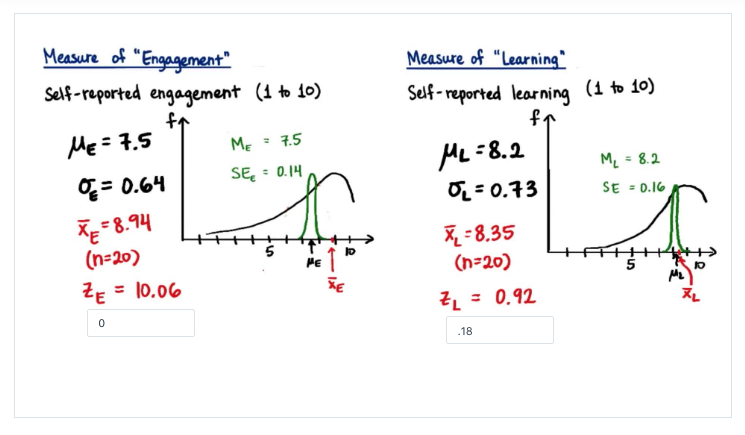 Measure of "Engagement"
Self-reported engagement (1 to 10)
μE = 7.5
σE = 0.64
x̄E = 8.94
(n=20)
zE = 10.06
0
f
ME = 7.5
SEE = 0.14
5
10
μE
x̄E
Measure of "Learning"
Self-reported learning (1 to 10)
μL = 8.2
σL = 0.73
x̄L = 8.35
(n=20)
zL = 0.92
.18
f
ML = 8.2
SE = 0.16
5
10
μL
x̄L